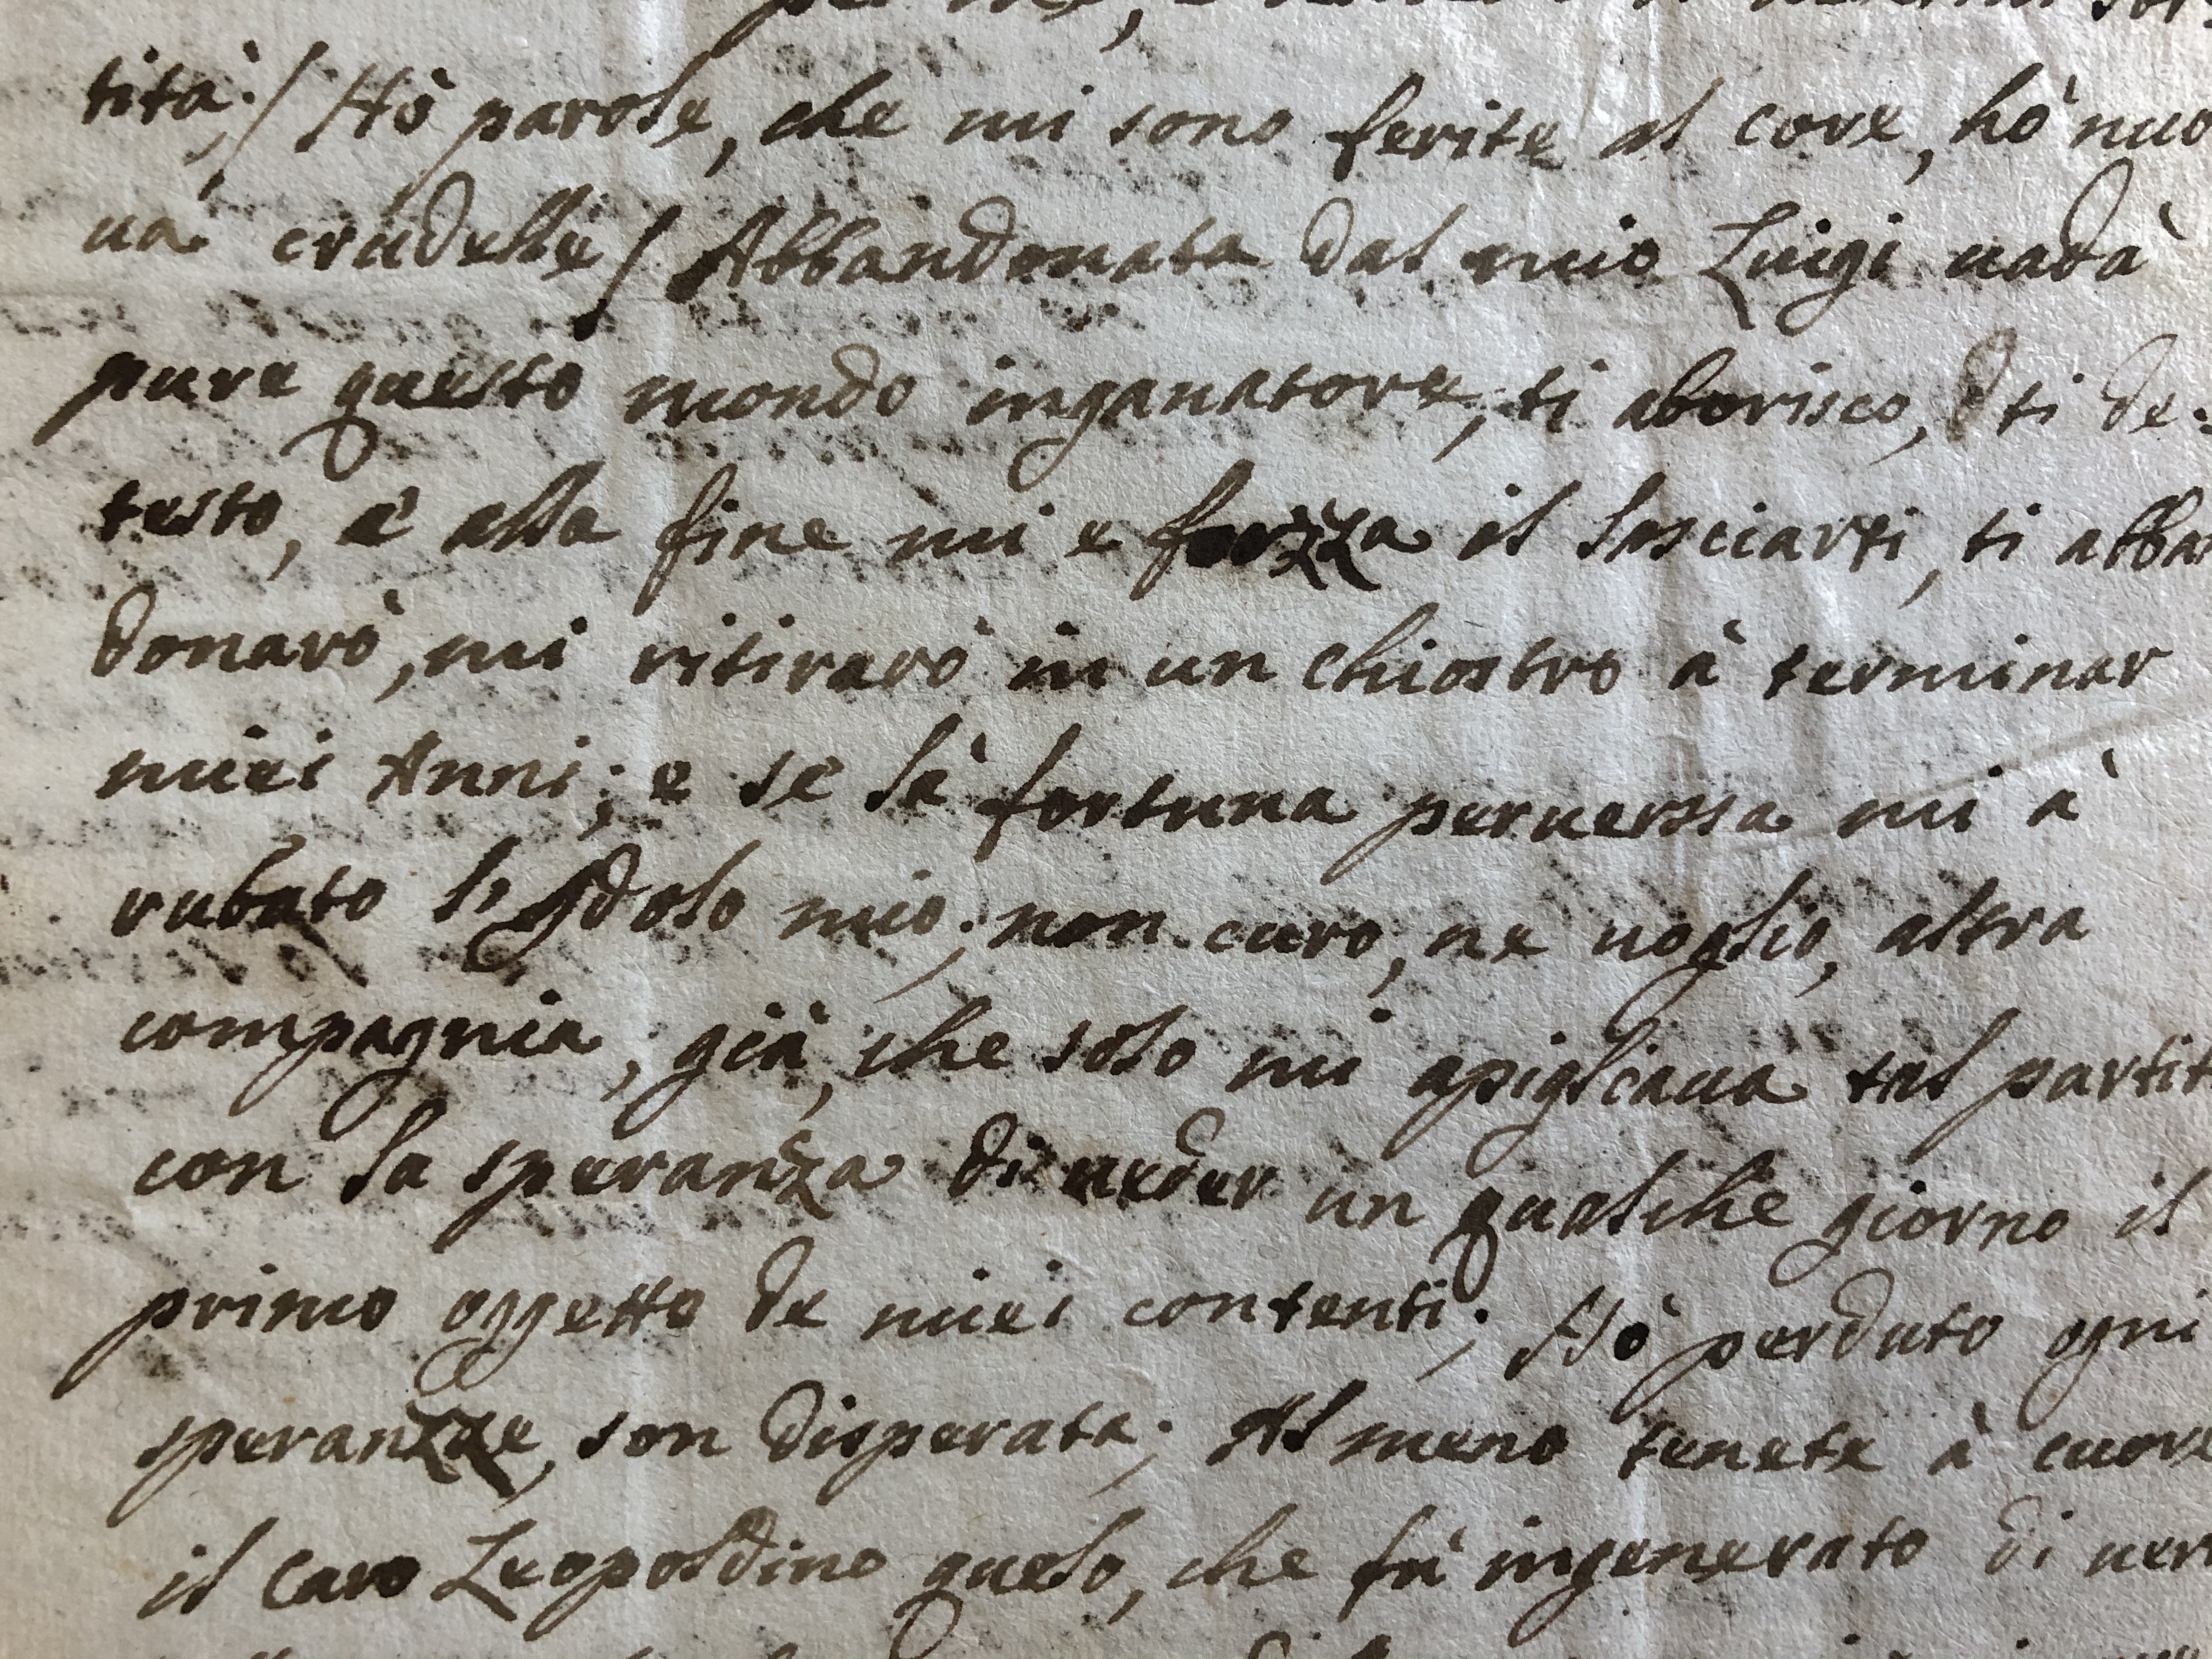 tità;/ Hò parole, che mi sono ferite al core, hò nuo
ua crudelle/ Abbandonata dal mio Luigi uadà
pure questo mondo inganatore, ti aborisco, ti de=
testo, è alla fine mi e forzza il lasciarti, ti abban
donarò, mi ritirarò in un chiostro à terminar
miei Anni; e se là fortuna peruerssa mi à
rubato l'Idolo mio; non curo, ne uoglio, altra
compagnia, già, che solo mi apigliaua tal partit
con la speranza di ueder un qualche giorno il
primo oggetto de miei contenti; Hò perduto ogni
speranzze, son disperata; Al meno tenete à cuore
il caro Leopoldino quelo, che fù ingenerato di uer